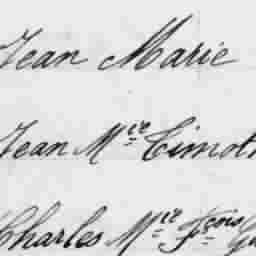 Jean Marie
Jean Mie Timoth
Charles Mie Fçois